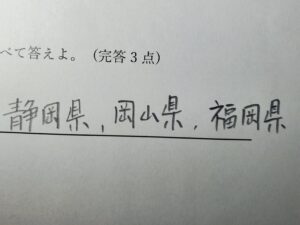 べて答えよ。(完答3点)
静岡県,岡山県,福岡県